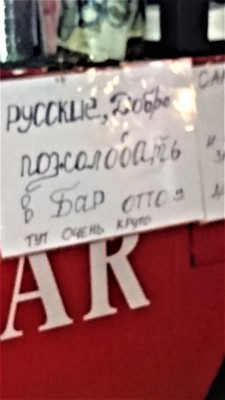 Русские, Добро
пожаловать
в Бар ОТТО"
ТУТ ОЧЕНЬ КРУТО
AR